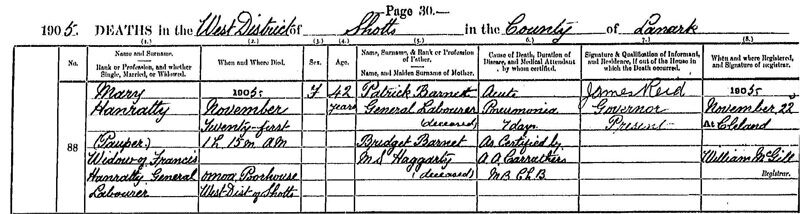 Page 30.
1905. DEATHS in the West District of Shotts in the County of Lanark
(1.) (2.) (3.) (4.) (5.) (6.) (7.) (8.)
No.
Name and Surname.
Rank or Profession, and whether Single, Married, or Widowed.
When and Where Died.
Sex.
Age.
Name, Surname, & Rank or Profession of Father.
Name, and Maiden Surname of Mother.
Cause of Death, Duration of Disease, and Medical Attendant by whom certified.
Signature & Qualification of Informant, and Residence, if out of the House in which the Death occurred.
When and where Registered, and Signature of Registrar.
88
Mary
Hanratty
(Pauper)
Widow of Francis
Hanratty General
Labourer
1905.
November
Twenty-first
1 h. 15 m. A M
Omoa Poorhouse
West Dist of Shotts
F
42
years
Patrick Barnet
General Labourer
(deceased)
Bridget Barnet
M.S Haggarty
(deceased)
Acute
Pneumonia
7 days
As Certified by
A. A. Carruthers
M B. C L B
James Reid
Governor
Present
1905.
November 22
At Cleland
William McGill
Registrar.